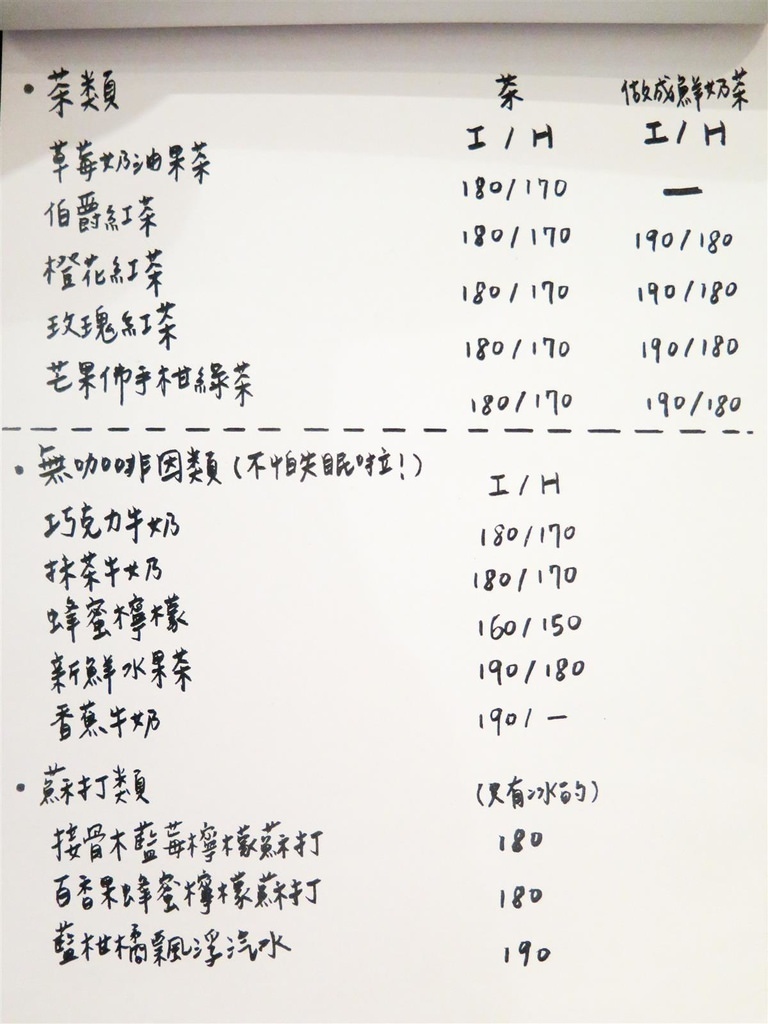 • 茶類 茶 做成鮮奶茶
I / H I / H
草莓奶油果茶 180/170 —
伯爵紅茶 180/170 190/180
橙花紅茶 180/170 190/180
玫瑰紅茶 180/170 190/180
芒果佛手柑綠茶 180/170 190/180
• 無咖啡因類(不怕失眠啦!) I / H
巧克力牛奶 180/170
抹茶牛奶 180/170
蜂蜜檸檬 160/150
新鮮水果茶 190/180
香蕉牛奶 190/ —
• 蘇打類 (只有冰的)
接骨木藍莓檸檬蘇打 180
百香果蜂蜜檸檬蘇打 180
藍柑橘飄浮汽水 190